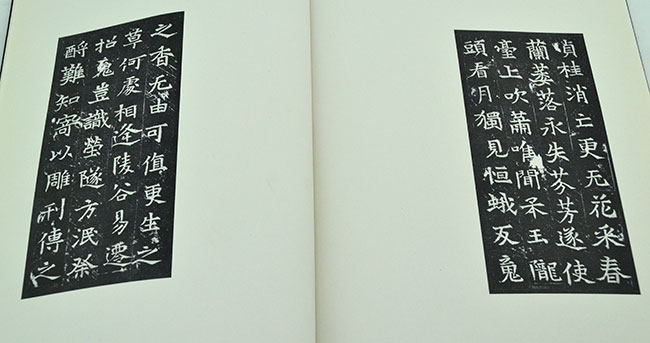 貞桂消亡更无花采春
蘭萎落永失芬芳遂使
臺上吹簫唯聞弄玉隴
頭看月獨見恒蛾反魂
之香无由可值更生之
草何處相逢陵谷易遷
招魂豈識塋隧方泯祭
酹難知寄以雕刊傳之